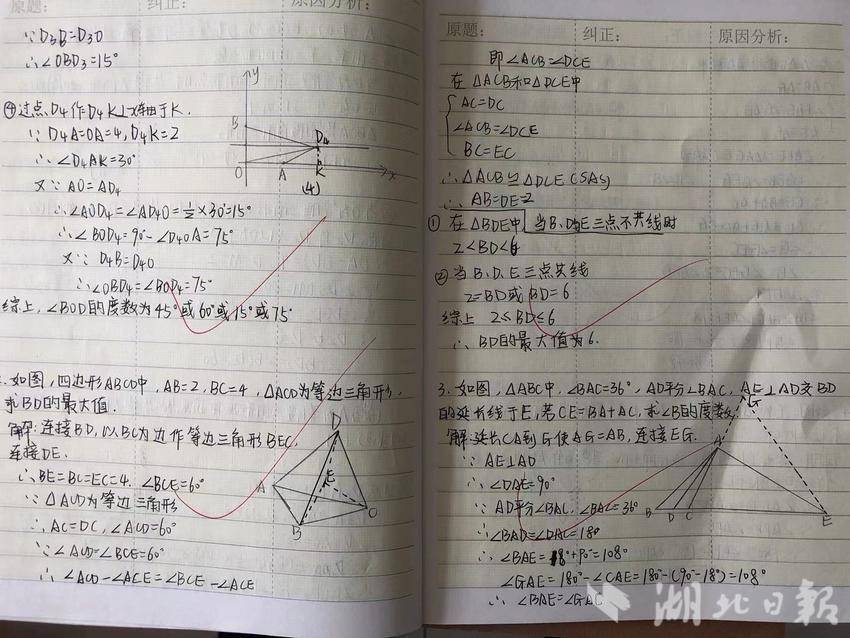 纠正:
原因分析:
∵D₃B=D₃O
∴∠OBD₃=15°
④过点D₄作D₄K⊥x轴于K.
∵D₄A=OA=4,D₄K=2
∴∠D₄AK=30°
又∵AO=AD₄
∴∠AOD₄=∠AD₄O=½×30°=15°
∴∠BOD₄=90°-∠D₄OA=75°
又∵D₄B=D₄O
∴∠OBD₄=∠BOD₄=75°
综上,∠BOD的度数为45°或60°或15°或75°
y
B
D₄
O
A
K
x
(4)
如图,四边形ABCD中,AB=2,BC=4,△ACD为等边三角形,
求BD的最大值.
解:连接BD,以BC为边作等边三角形BEC,
连接DE.
∴BE=BC=EC=4.∠BCE=60°
∵△ACD为等边三角形
∴AC=DC,∠ACD=60°
∵∠ACD=∠BCE=60°
∴∠ACD-∠ACE=∠BCE-∠ACE
D
A
E
B
C
原题:
纠正:
原因分析:
即∠ACB=∠DCE
在△ACB和△DCE中
AC=DC
∠ACB=∠DCE
BC=EC
∴△ACB≌△DCE(SAS)
∴AB=DE=2
①在△BDE中,当B.D.E三点不共线时
2<BD<6
②当B.D.E三点共线
2=BD或BD=6
综上 2≤BD≤6
∴BD的最大值为6.
3.如图,△ABC中,∠BAC=36°,AD平分∠BAC,AE⊥AD交BD
的延长线于E,若CE=BA+AC,求∠B的度数.
解:延长CA到G使AG=AB,连接EG.
∵AE⊥AD
∴∠DAE=90°
∵AD平分∠BAC.∠BAC=36°
∴∠BAD=∠DAC=18°
∴∠BAE=18°+90°=108°
∠GAE=180°-∠CAE=180°-(90°-18°)=108°
∴∠BAE=∠GAE
G
A
B
D
C
E
湖北日報